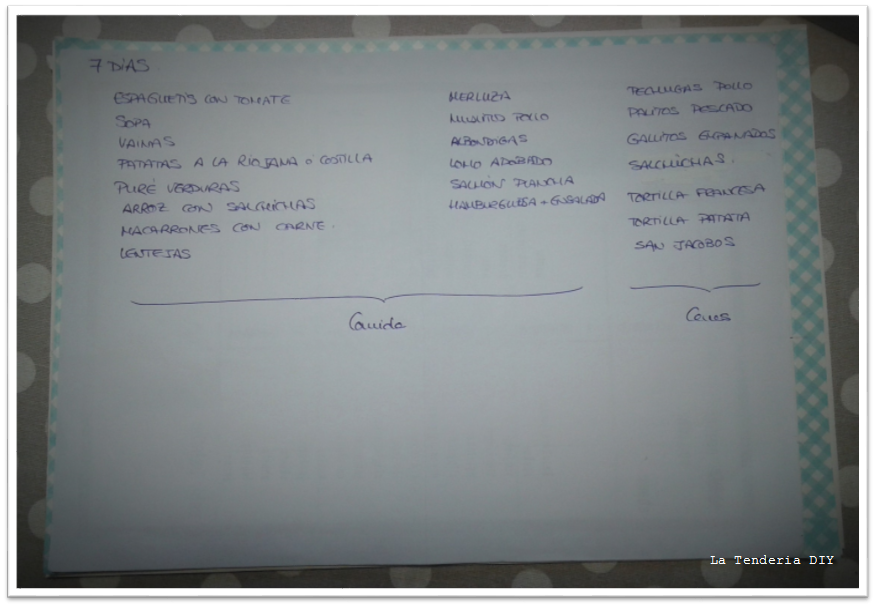 7 DÍAS
ESPAGUETIS CON TOMATE
SOPA
VAINAS
PATATAS A LA RIOJANA o COSTILLA
PURÉ VERDURAS
ARROZ CON SALCHICHAS
MACARRONES CON CARNE.
LENTEJAS
MERLUZA
MUSLITO POLLO
ALBÓNDIGAS
LOMO ADOBADO
SALMÓN PLANCHA
HAMBURGUESA + ENSALADA
Comida
PECHUGAS POLLO
PALITOS PESCADO
GALLITOS EMPANADOS
SALCHICHAS.
TORTILLA FRANCESA
TORTILLA PATATA
SAN JACOBOS
Cenas
La Tenderia DIY